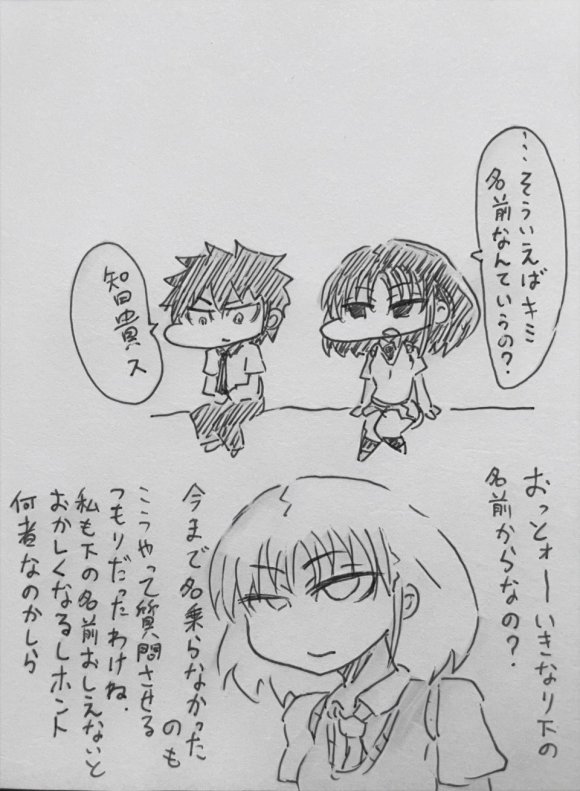 …そういえばキミ
名前なんていうの?
智貴ス
おっとォーいきなり下の
名前からなの?
今まで名乗らなかった
のも
こうやって質問させる
つもりだったわけね.
私も下の名前おしえないと
おかしくなるしホント
何者なのかしら